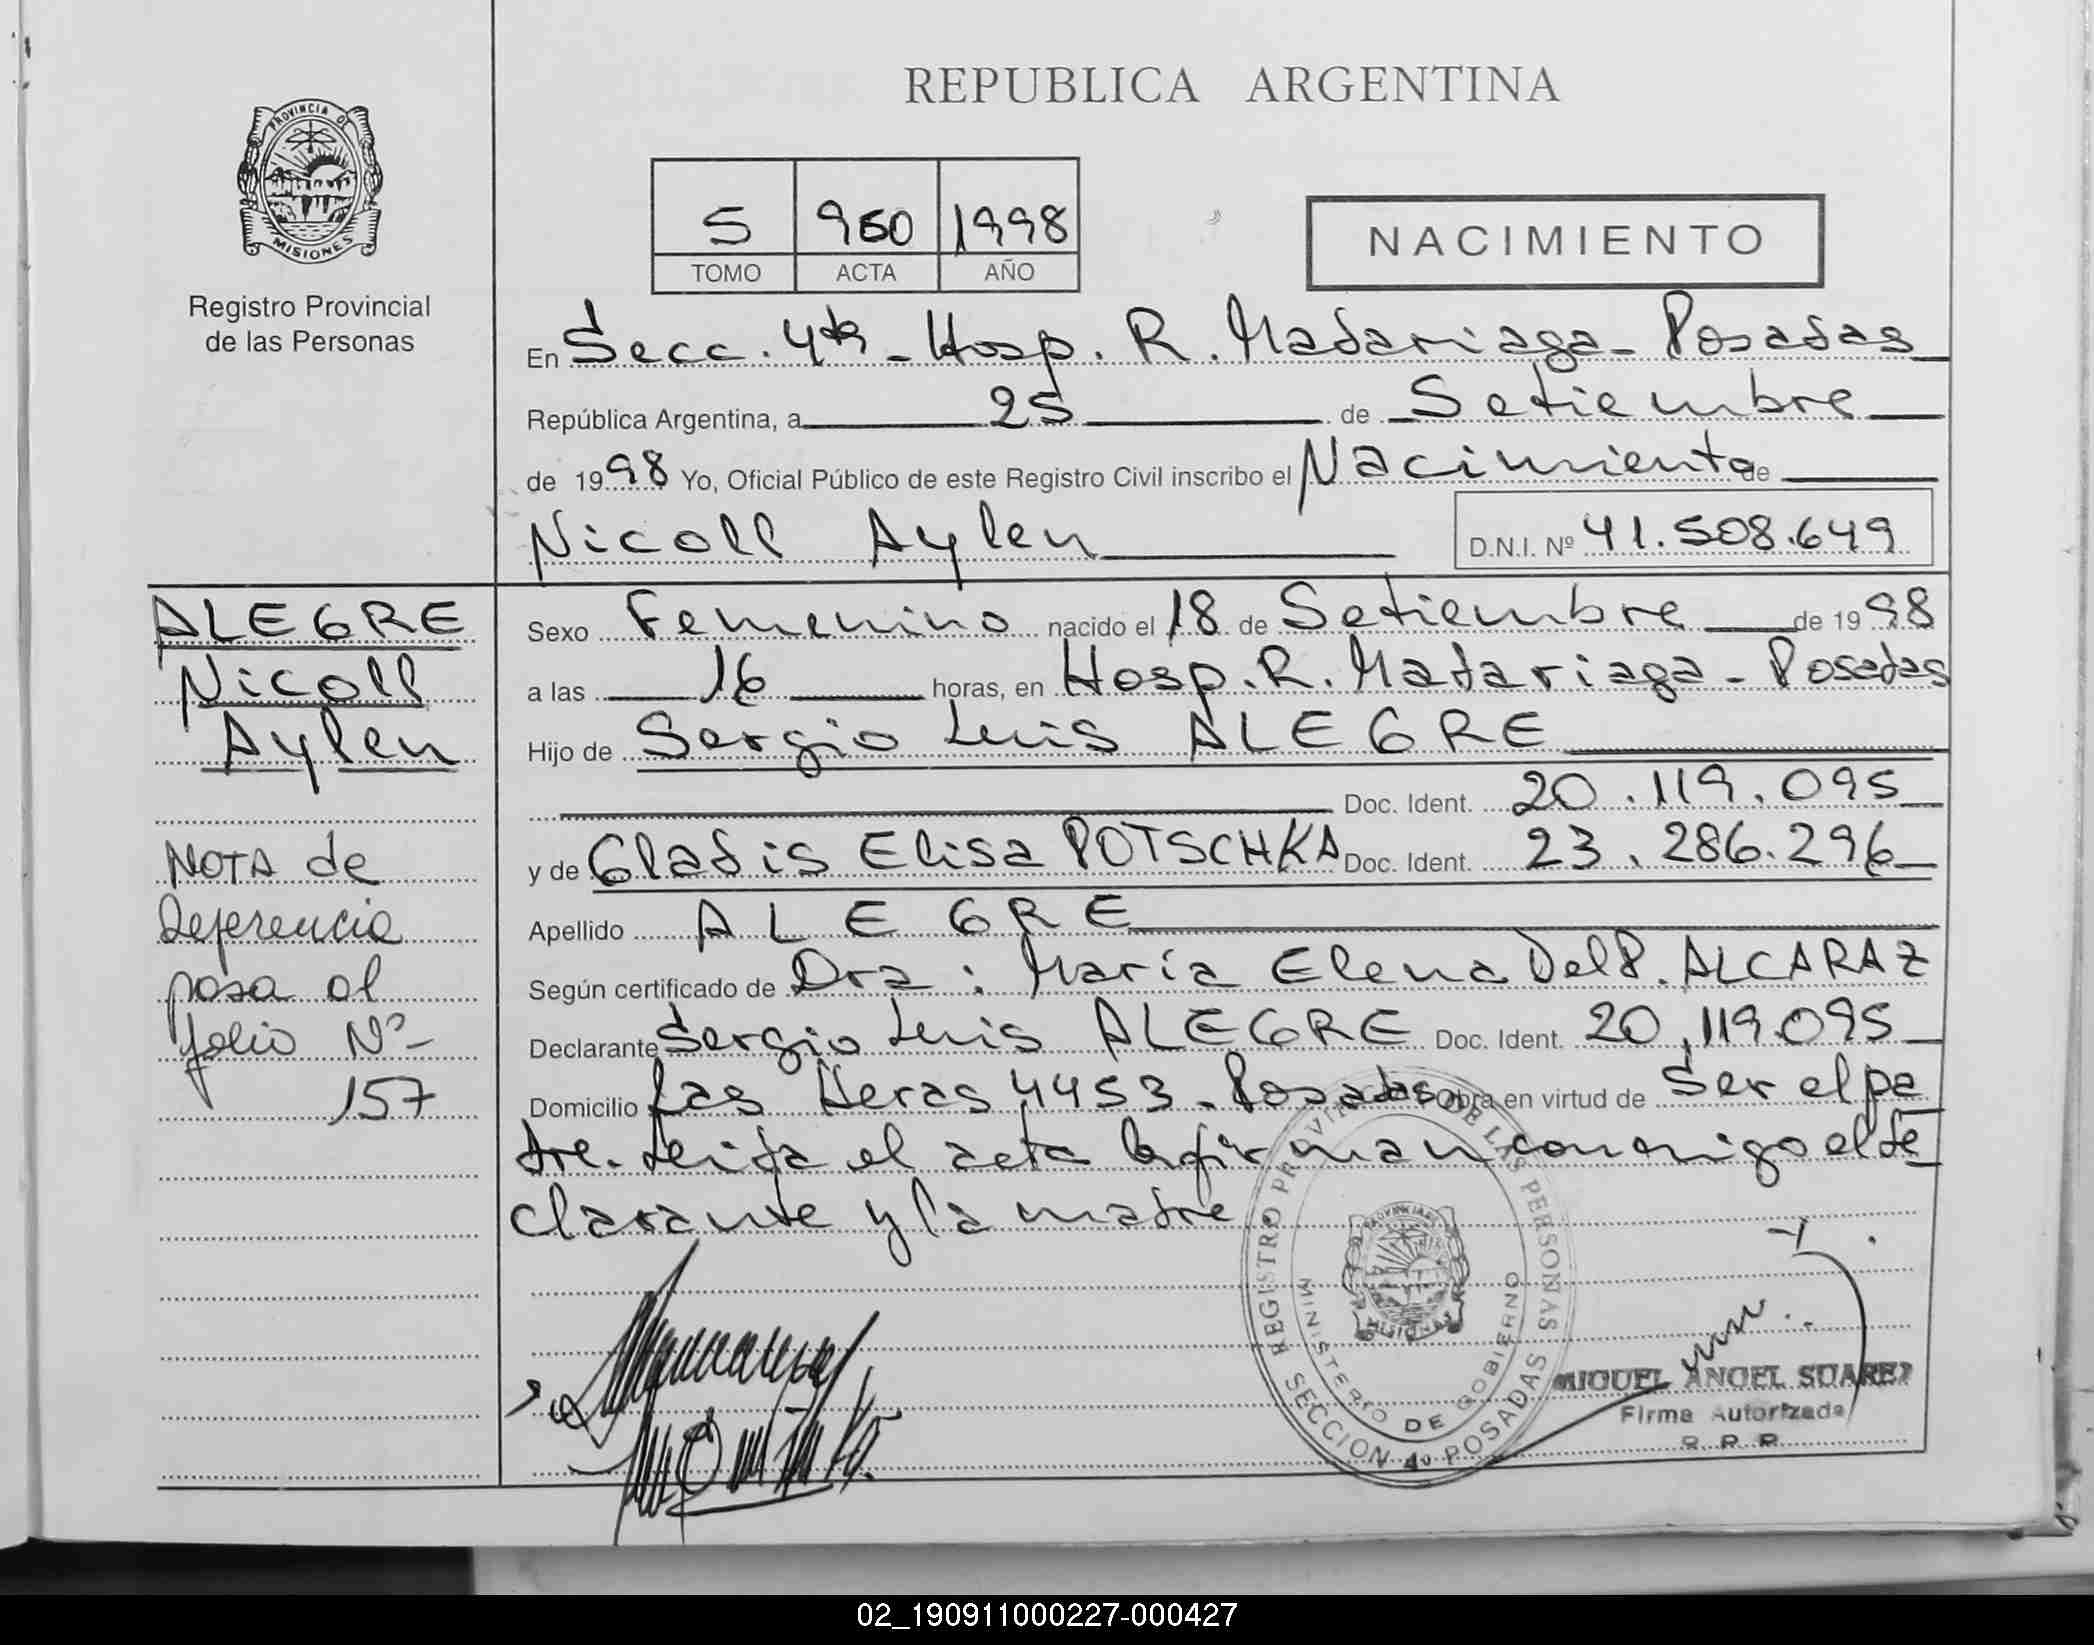 REPUBLICA ARGENTINA
PROVINCIA DE
MISIONES
Registro Provincial
de las Personas
5 960 1998
TOMO ACTA AÑO
NACIMIENTO
En Secc. 4ta - Hosp. R. Madariaga - Posadas
República Argentina, a 25 de Setiembre
de 1998 Yo, Oficial Público de este Registro Civil inscribo el Nacimiento de
Nicoll Aylen D.N.I. Nº 41.508.649
ALEGRE
Nicoll
Aylen
NOTA de
Referencia
pasa al
folio Nº
157
Sexo Femenino nacido el 18 de Setiembre de 1998
a las 16 horas, en Hosp. R. Madariaga - Posadas
Hijo de Sergio Luis ALEGRE
Doc. Ident. 20.119.095
y de Gladis Elisa POTSCHKA Doc. Ident. 23.286.296
Apellido ALEGRE
Según certificado de Dra: María Elena Del P. ALCARAZ
Declarante Sergio Luis ALEGRE Doc. Ident. 20.119.095
Domicilio Las Heras 4453 - Posadas Obra en virtud de Ser el pa
dre. Leída el acta la firman conmigo el de
clarante y la madre.
REGISTRO PROVINCIAL DE LAS PERSONAS
MINISTERIO DE GOBIERNO
SECCION 4º POSADAS
PROVINCIA DE
MISIONES
MIGUEL ANGEL SUAREZ
Firma Autorizada
R. P. P.
02_190911000227-000427